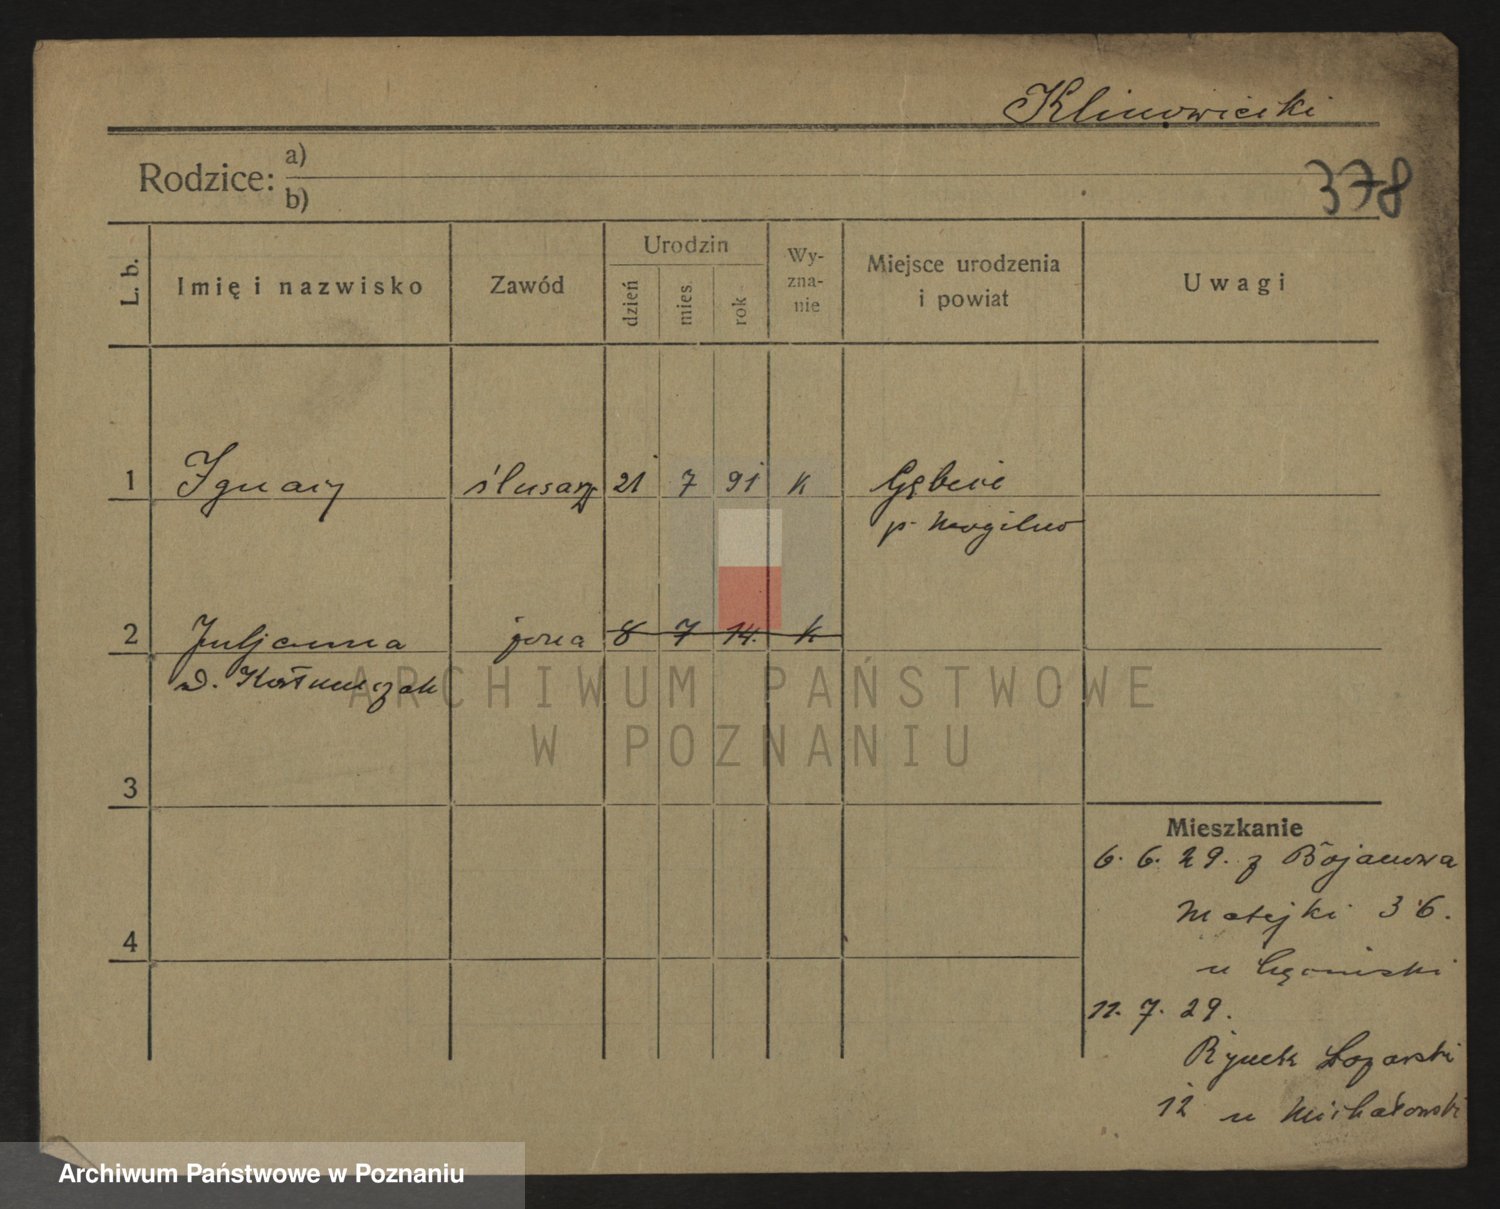 Klinowiecki
Rodzice: a)
b)
378
L. b.
Imię i nazwisko
Zawód
Urodzin
dzień
mies.
rok
Wy-
zna-
nie
Miejsce urodzenia
i powiat
Uwagi
1 Ignacy ślusarz 21 7 91 K Gębice
p. Mogilno
2 Juljanna żona 8 7 14. k
ARCHIWUM PAŃSTWOWE
W POZNANIU
3
Mieszkanie
6. 6. 29. z Bojanowa
Matejki 36.
u
4
11. 7. 29.
Rynek Łazarski
12 u Michałowski
Archiwum Państwowe w Poznaniu